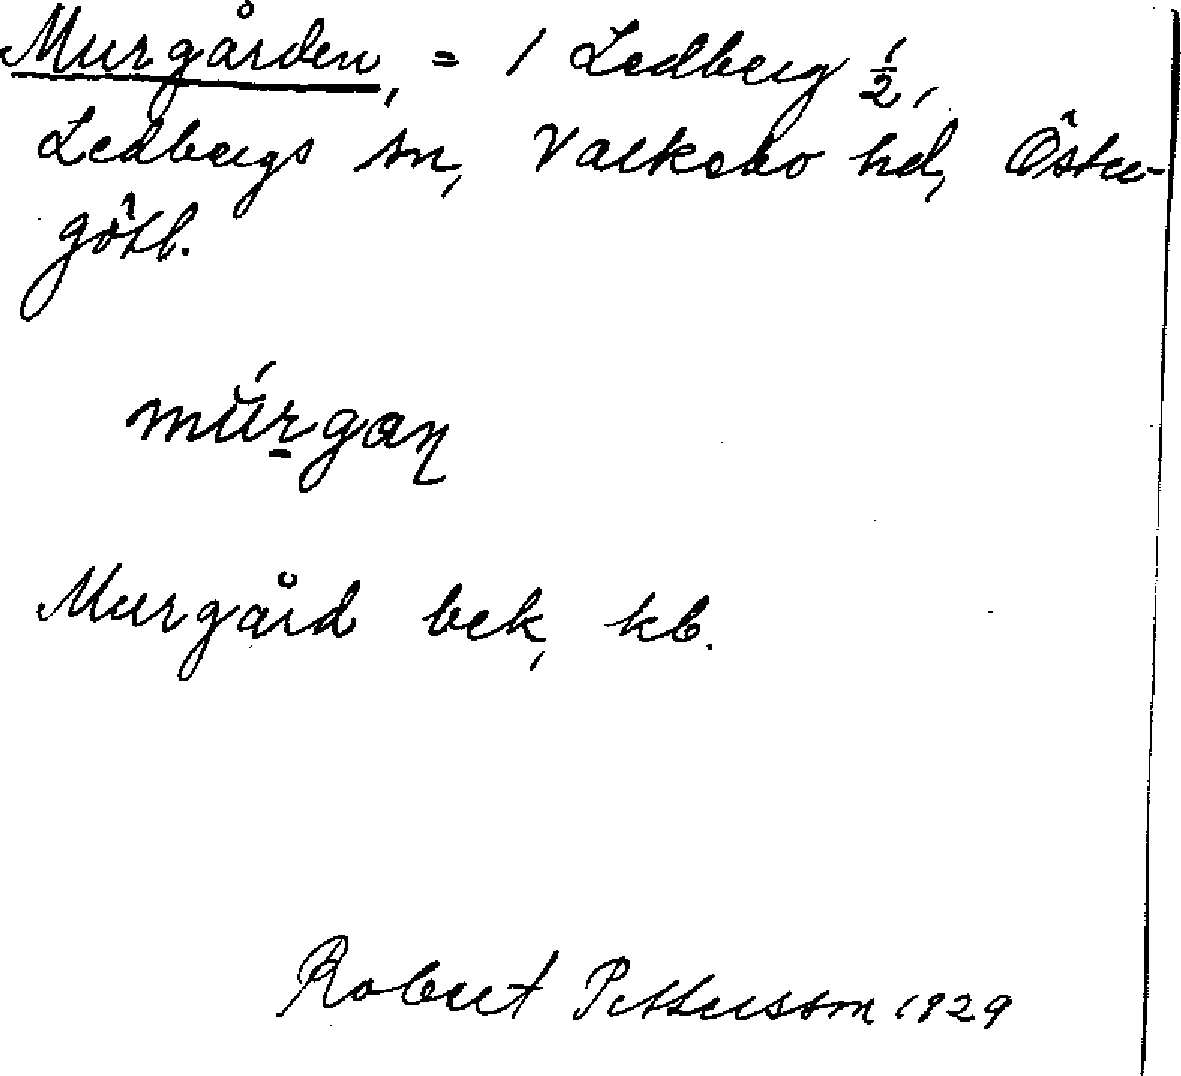 Murgården, = 1 Ledberg 1/2,
Ledbergs sn, Valkebo hd, Öster-
götl.
mŭ́rgaṇ
Murgård bek, kb.
Robert Pettersson 1929